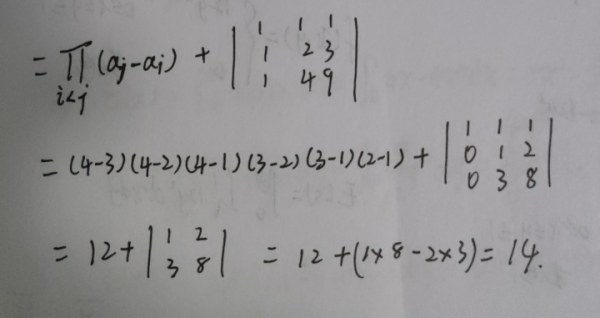 = ∏ (aj-ai) + | 1 1 1
i<j 1 2 3
1 4 9 |
= (4-3)(4-2)(4-1)(3-2)(3-1)(2-1) + | 1 1 1
0 1 2
0 3 8 |
= 12 + | 1 2
3 8 | = 12+(1×8-2×3)=14.